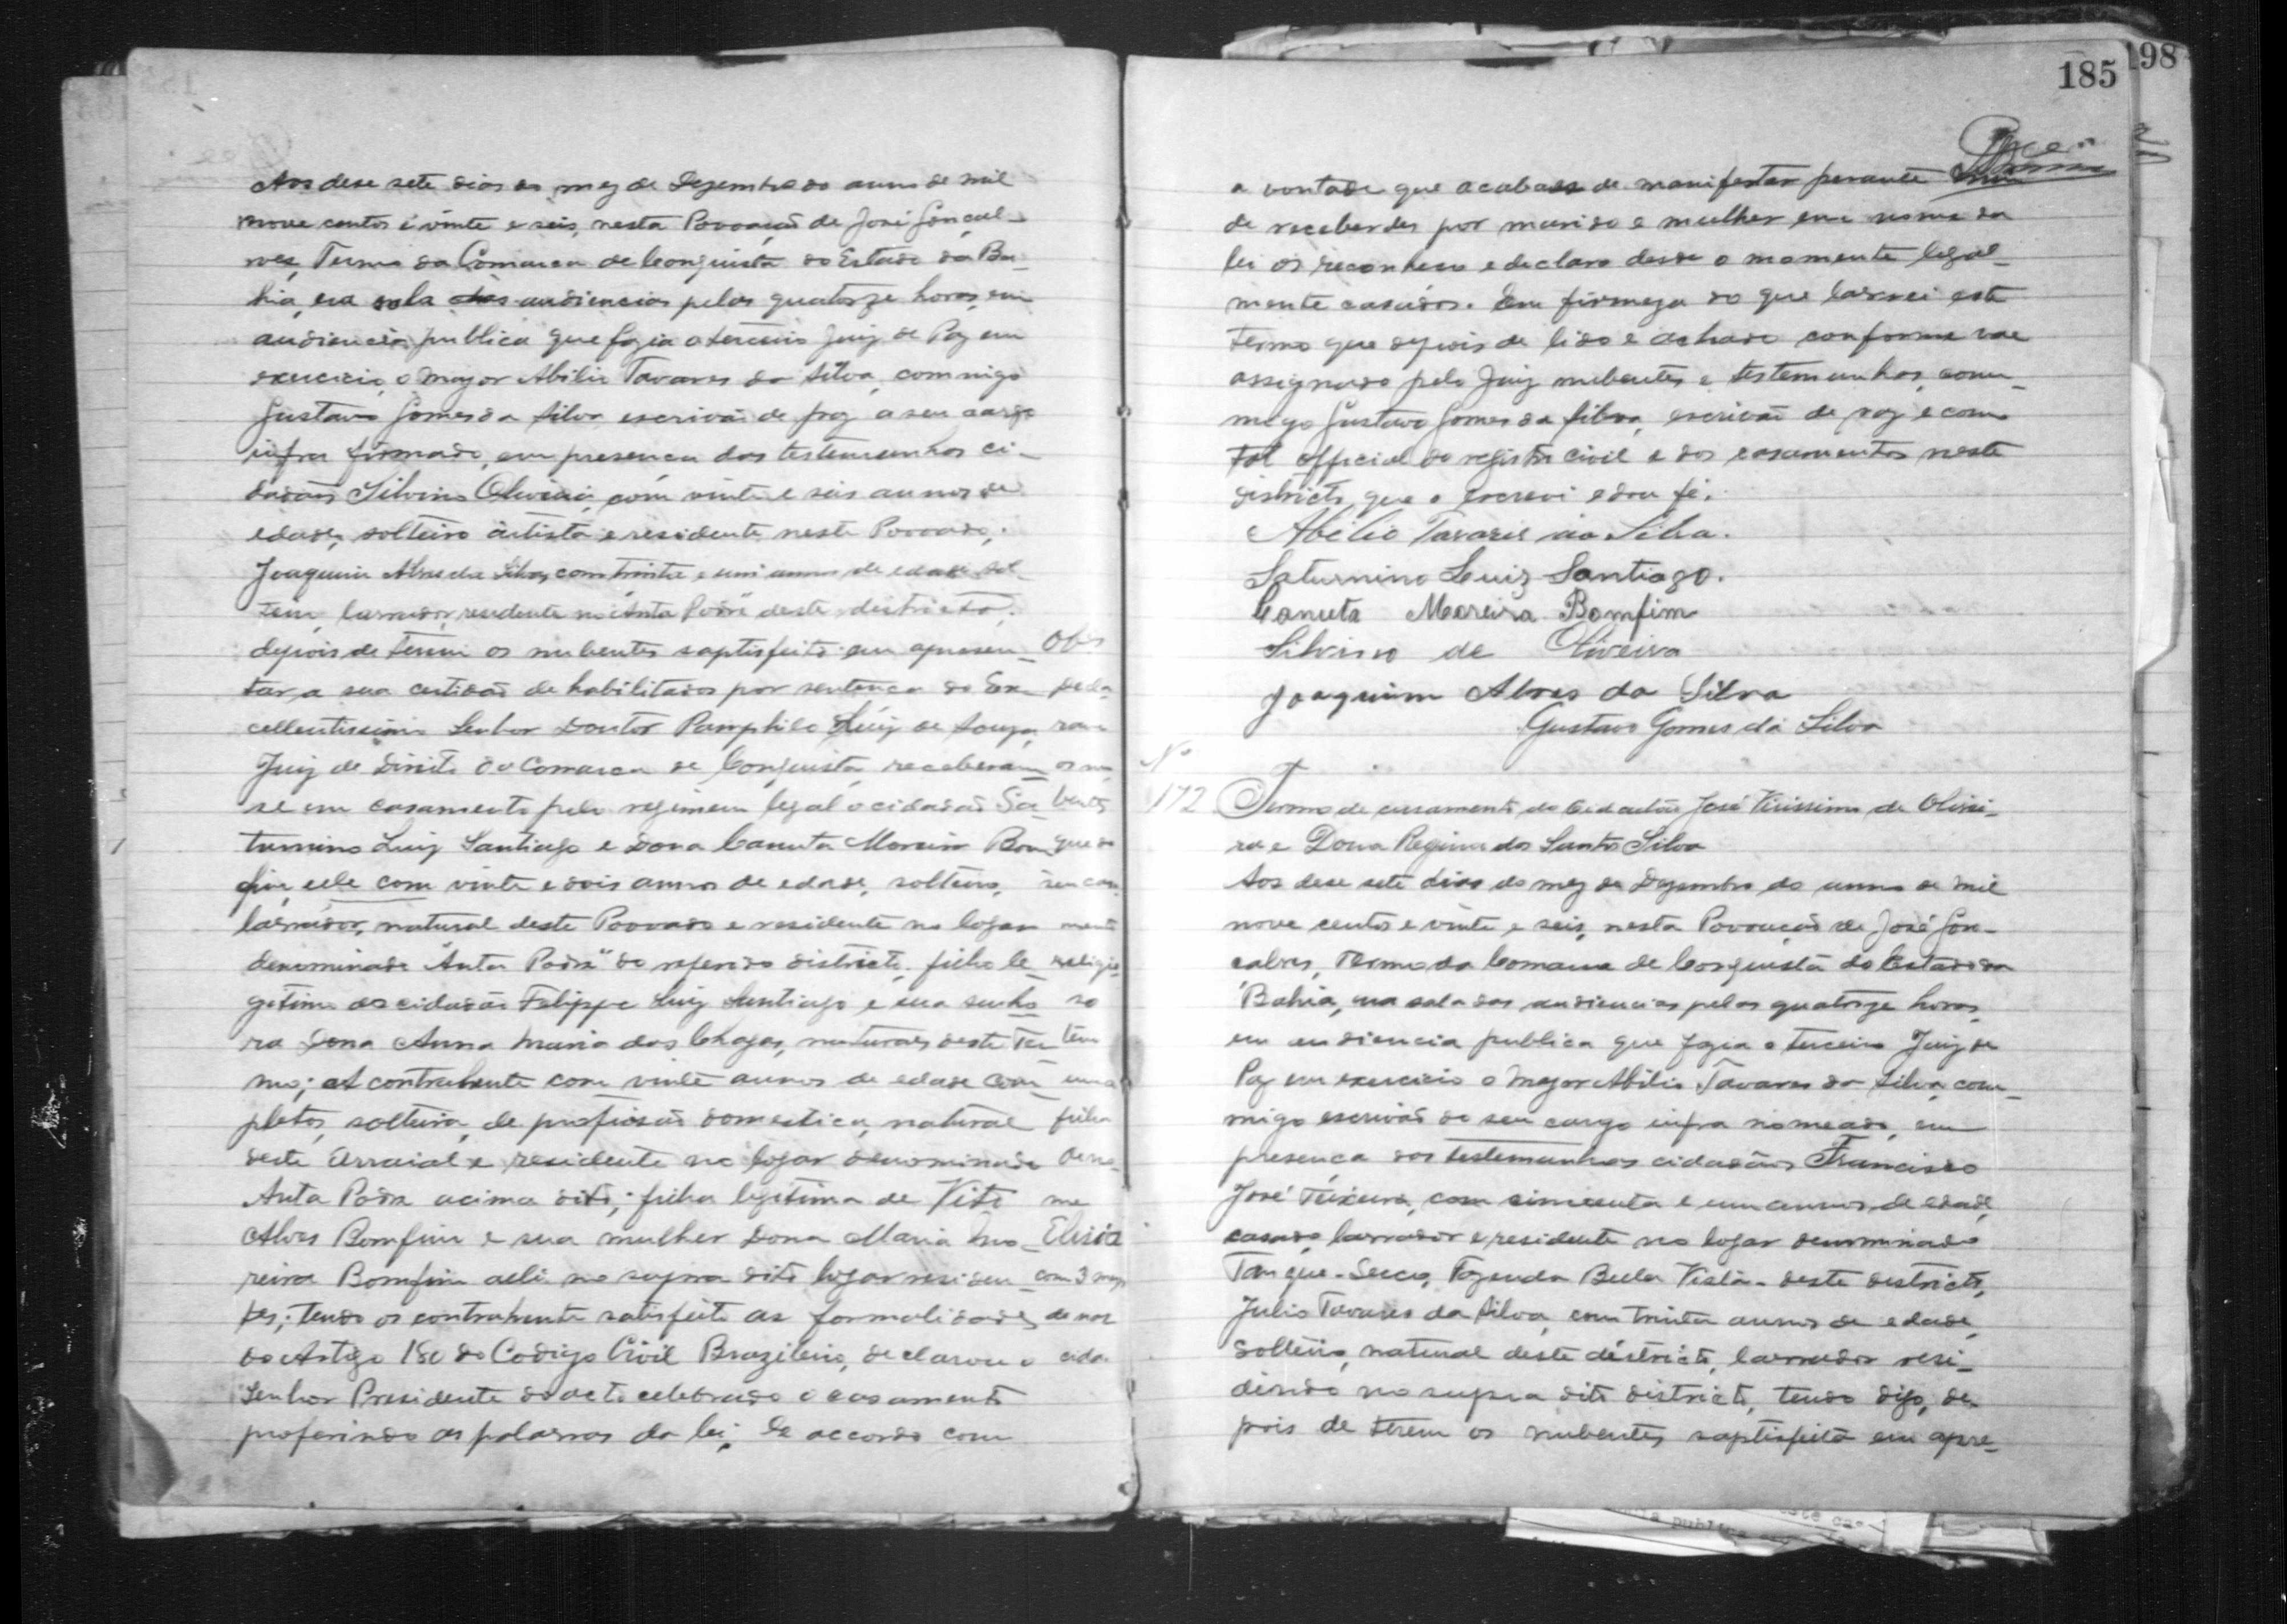 Aos dese sete dias do mez de Dezembro do anno de mil
nove centos e vinte e seis, nesta Povoação de José Gonçal-
ves, Termo da Comarca de Conquista do Estado da Ba-
hia, na sala das audiencias pelas quatorze horas, em
audiencia publica que fazia o terceiro Juiz de Paz em
exercicio, o Major Abilio Tavares da Silva, commigo
Gustavo Gomes da Silva escrivão de paz a seu cargo
infra firmado, em presença das testemunhas ci-
dadãos Silvino Oliveira, com vinte e seis annos de
edade, solteiro artista e residente neste Povoado,
Joaquim Alves da Silva, com trinta e um annos de edade sol-
teiro, lavrador, residente na "Anta Podre" deste districto,
depois de terem os nubentes saptisfeito em apresen-
tar a sua certidão de habilitados por sentença do Ex-
cellentissimo Senhor Doutor Pamphilo Luiz de Souza,
Juiz de Direito da Comarca de Conquista, receberam
se em casamento pelo regimem legal o cidadão Sa-
turnino Luiz Santiago e Dona Canuta Moreira Bom-
fim, elle com vinte e dois annos de edade, solteiro,
lavrador, natural deste Povoado e residente no logar
denominado "Anta Podre" do referido districto, filho le-
gitimo do cidadão Felippe Luiz Santiago e sua senho-
ra Dona Anna Maria das Chagas, naturaes deste Ter-
mo; A contrahente com vinte annos de edade com-
pletos, solteira, de profissão domestica, natural
deste Arraial e residente no logar denominado
Anta Podre acima dito; filha legitima de Vito
Alves Bomfim e sua mulher Dona Maria Mo-
reira Bomfim alli no supra dito logar residen-
tes; tendo os contrahente satisfeito as formalidades
do Artigo 180 do Codigo Civil Brazileiro, declarou o
Senhor Presidente do acto celebrado o casamento
proferindo as palavras da lei, De accordo com
Obs
peda
ram
os nu
bentes
que do
seu casa
mento
religio
so
tem
uma
filha
de no-
me
Elisia
com 3 mezes
de nas
cida
185
198
a vontade que acabaes de manifestar perante mim
de receberdes por marido e mulher em nome da
lei os reconheco e declaro desde o momento legal-
mente casados. Em firmeza do que lavrei este
termo que depois de lido e achado conforme vae
assignado pelo Juiz nubentes e testemunhas, com-
migo Gustavo Gomes da Silva, escrivão de paz e como
tal official do registro civil e dos casamentos neste
districto, que o escrevi e dou fé.
Abilio Tavares da Silva.
Saturnino Luiz Santiago.
Canuta Moreira Bomfim
Silvino de Oliveira
Joaquim Alves da Silva
Gustavo Gomes da Silva
Nº
172 Termo de casamento do Cidadão José Virissimo de Olivei-
ra e Dona Regina dos Santos Silva
Aos dese sete dias do mez de Dezembro do anno de mil
nove centos e vinte e seis, nesta Povoação de José Gon-
calves, Termo da Comarca de Conquista do Estado da
Bahia, na sala das audiencias pelas quatorze horas,
em audiencia publica que fazia o terceiro Juiz de
Paz em exercicio o Major Abilio Tavares da Silva, com-
migo escrivão do seu cargo infra nomeado, em
presença das testemunhas cidadãos Francisco
José Teixeira, com cincoenta e um annos, de edade,
casado, lavrador e residente no logar denominado
Tanque-Secco, Fazenda Bella Vista - deste districto,
Julio Tavares da Silva, com trinta annos de edade,
solteiro, natural deste districto, lavrador resi-
dindo no supra dito districto, tendo digo, de-
pois de terem os nubentes saptisfeito em apre-